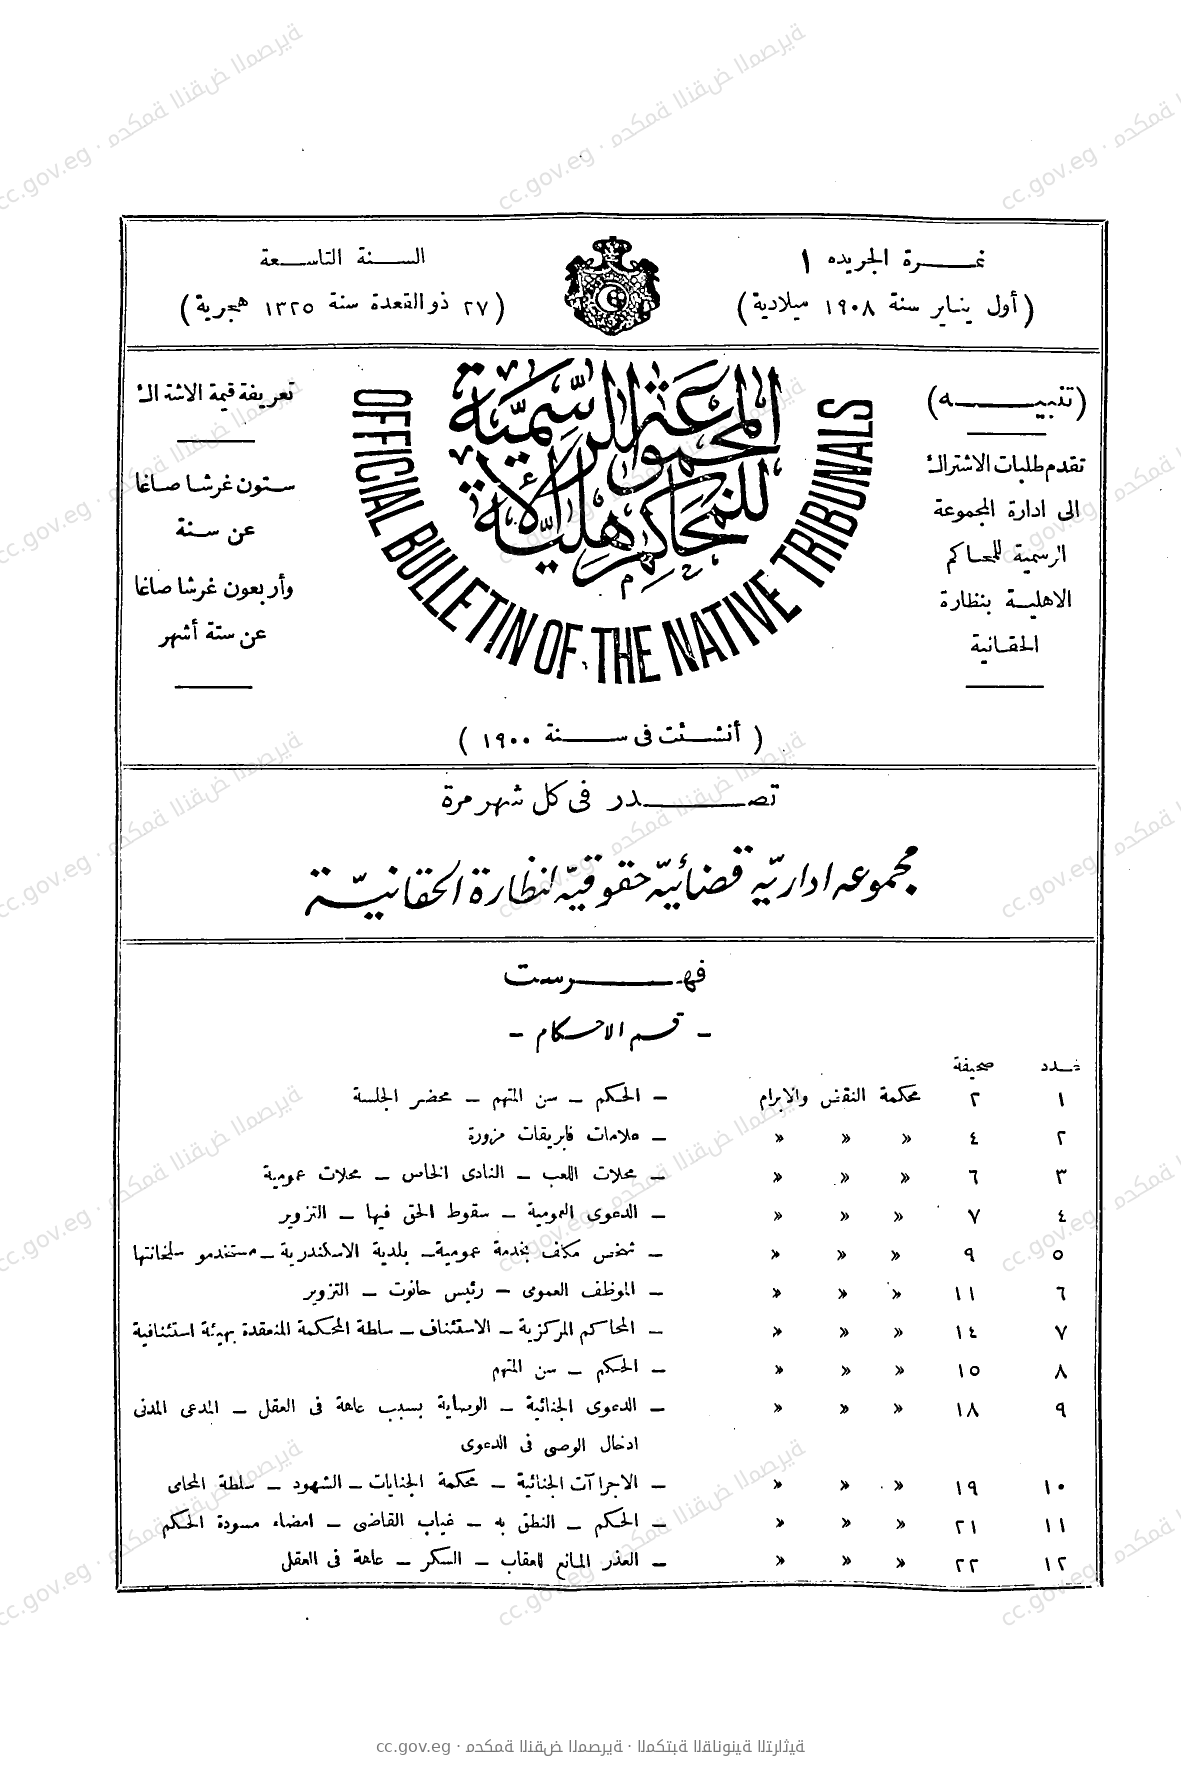 نمرة الجريده ١
(أول يناير سنة ١٩٠٨ ميلادية)
السنة التاسعة
(٢٧ ذو القعدة سنة ١٣٢٥ هجرية)
(تنبيه)
تقدم طلبات الاشتراك
الى ادارة المجموعة
الرسمية للمحاكم
الاهلية بنظارة
الحقانية
المجموعة الرسمية
للمحاكم الأهلية
OFFICIAL BULLETIN OF THE NATIVE TRIBUNALS
(أنشئت فى سنة ١٩٠٠)
تعريفة قيمة الاشتراك
ستون غرشا صاغا
عن سنة
وأربعون غرشا صاغا
عن ستة أشهر
تصدر فى كل شهر مرة
مجموعه اداريّه قضائيّه حقوقيّه لنظارة الحقانيّة
فهرست
- قسم الاحكام -
عدد صحيفة
١ ٢ محكمة النقض والابرام – الحكم – سن المتهم – محضر الجلسة
٢ ٤ » » » – علامات فابريقات مزورة
٣ ٦ » » » – محلات اللعب – النادى الخاص – محلات عمومية
٤ ٧ » » » – الدعوى العمومية – سقوط الحق فيها – التزوير
٥ ٩ » » » – شخص مكلف بخدمة عمومية – بلدية الاسكندرية – مستخدمو سلخانتها
٦ ١١ » » » – الموظف العمومى – رئيس حانوت – التزوير
٧ ١٤ » » » – المحاكم المركزية – الاستئناف – سلطة المحكمة المنعقدة بهيئة استئنافية
٨ ١٥ » » » – الحكم – سن المتهم
٩ ١٨ » » » – الدعوى الجنائية – الوصاية بسبب عاهة فى العقل – المدعى المدنى
ادخال الوصى فى الدعوى
١٠ ١٩ » » » – الاجراآت الجنائية – محكمة الجنايات – الشهود – سلطة المحامى
١١ ٢١ » » » – الحكم – النطق به – غياب القاضى – امضاء مسودة الحكم
١٢ ٢٢ » » » – العذر المانع للعقاب – السكر – عاهة فى العقل
cc.gov.eg · محكمة النقض المصرية · المكتبة القانونية التراثية